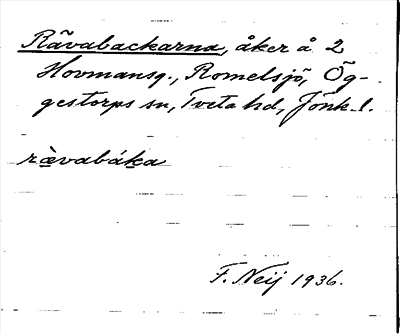 Rävabackarna, åker å 2
Hovmansg., Romelsjö, Ög-
gestorps sn, Tveta hd, Jönk. l.
rävabáka
F. Neij 1936.